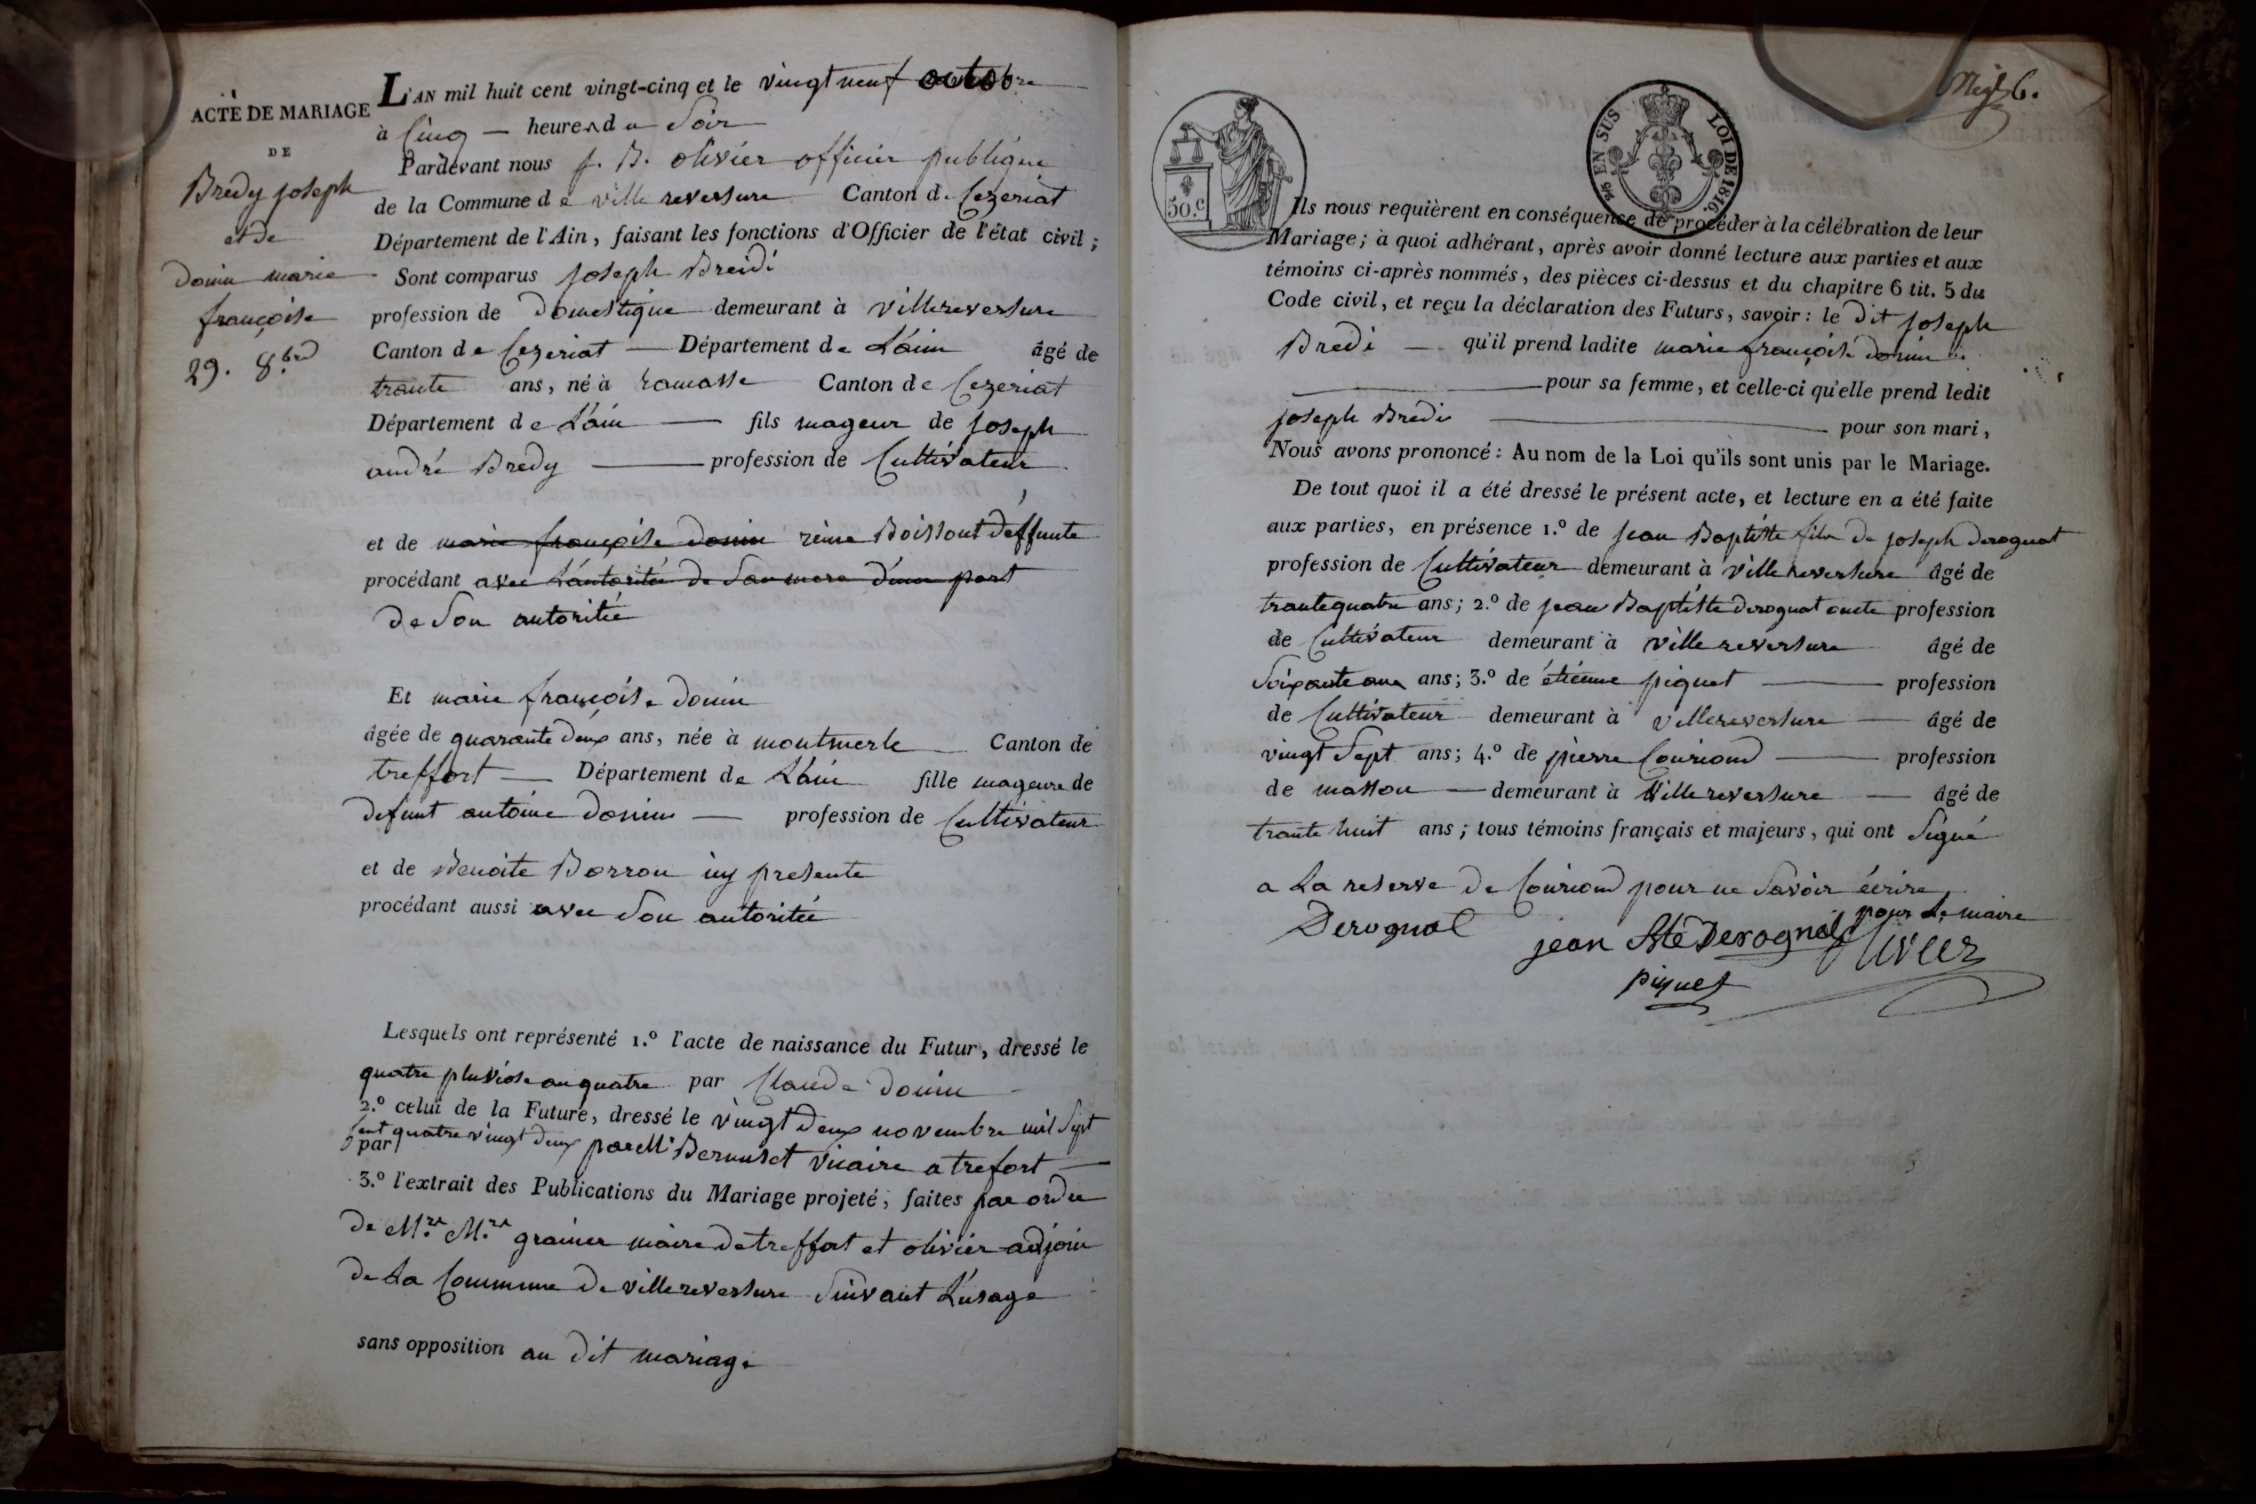 ACTE DE MARIAGE
DE
Bredy joseph
et de
donin marie
françoise
29. 8.bre
L'AN mil huit cent vingt-cinq et le vingt neuf octobre
à Cinq heures du Soir
Pardevant nous j. B. olivier officier publique
de la Commune de villereversure Canton de Cezeriat
Département de l'Ain, faisant les fonctions d'Officier de l'état civil;
Sont comparus joseph Breidi
profession de Domestique demeurant à villereversure
Canton de Cezeriat Département de L'ain âgé de
trante ans, né à ramasse Canton de Cezeriat
Département de L'ain fils mageur de joseph
andré Bredy profession de Cultivateur
et de marie françoise donin reine Boissout deffunte
procédant avec L'autoritée de Sa mere d'une part
de Son autoritée
Et marie françoise donin
âgée de quarante deux ans, née à montmerle Canton de
treffort Département de L'ain fille mageure de
defunt antoine donin profession de Cultivateur
et de Benoite Borron icy presente
procédant aussi avec Son autoritée
Lesquels ont représenté 1.º l'acte de naissance du Futur, dressé le
quatre pluviose an quatre par Claude donin
2.º celui de la Future, dressé le vingt deux novembre mil Sept
Cent quatre vingt deux
par par Mr Bernuset vicaire a trefort
3.º l'extrait des Publications du Mariage projeté, faites par ordre
de M.rs M.rs grainer maire de treffort et olivier adjoin
de La Commune de villereversure Suivant L'usage
sans opposition au dit mariage
50.c
EN SUS
LOI DE 1816.
6.
Ils nous requièrent en conséquence de procéder à la célébration de leur
Mariage; à quoi adhérant, après avoir donné lecture aux parties et aux
témoins ci-après nommés, des pièces ci-dessus et du chapitre 6 tit. 5 du
Code civil, et reçu la déclaration des Futurs, savoir: le dit joseph
Bredi qu'il prend ladite marie françoise donin
pour sa femme, et celle-ci qu'elle prend ledit
joseph Bredi pour son mari,
Nous avons prononcé: Au nom de la Loi qu'ils sont unis par le Mariage.
De tout quoi il a été dressé le présent acte, et lecture en a été faite
aux parties, en présence 1.º de jean Baptiste fils de joseph derognat
profession de Cultivateur demeurant à villereversure âgé de
trantequatre ans; 2.º de jean Baptiste derognat oncle profession
de Cultivateur demeurant à villereversure âgé de
Soixante ans ans; 3.º de étienne piquet profession
de Cultivateur demeurant à villereversure âgé de
vingt Sept ans; 4.º de pierre Couriond profession
de masson demeurant à villereversure âgé de
trante huit ans; tous témoins français et majeurs, qui ont Signé
a La reserve de Couriond pour ne Savoir écrire
pour Le maire
Derognat jean Bte Derognat Olivier
piquet